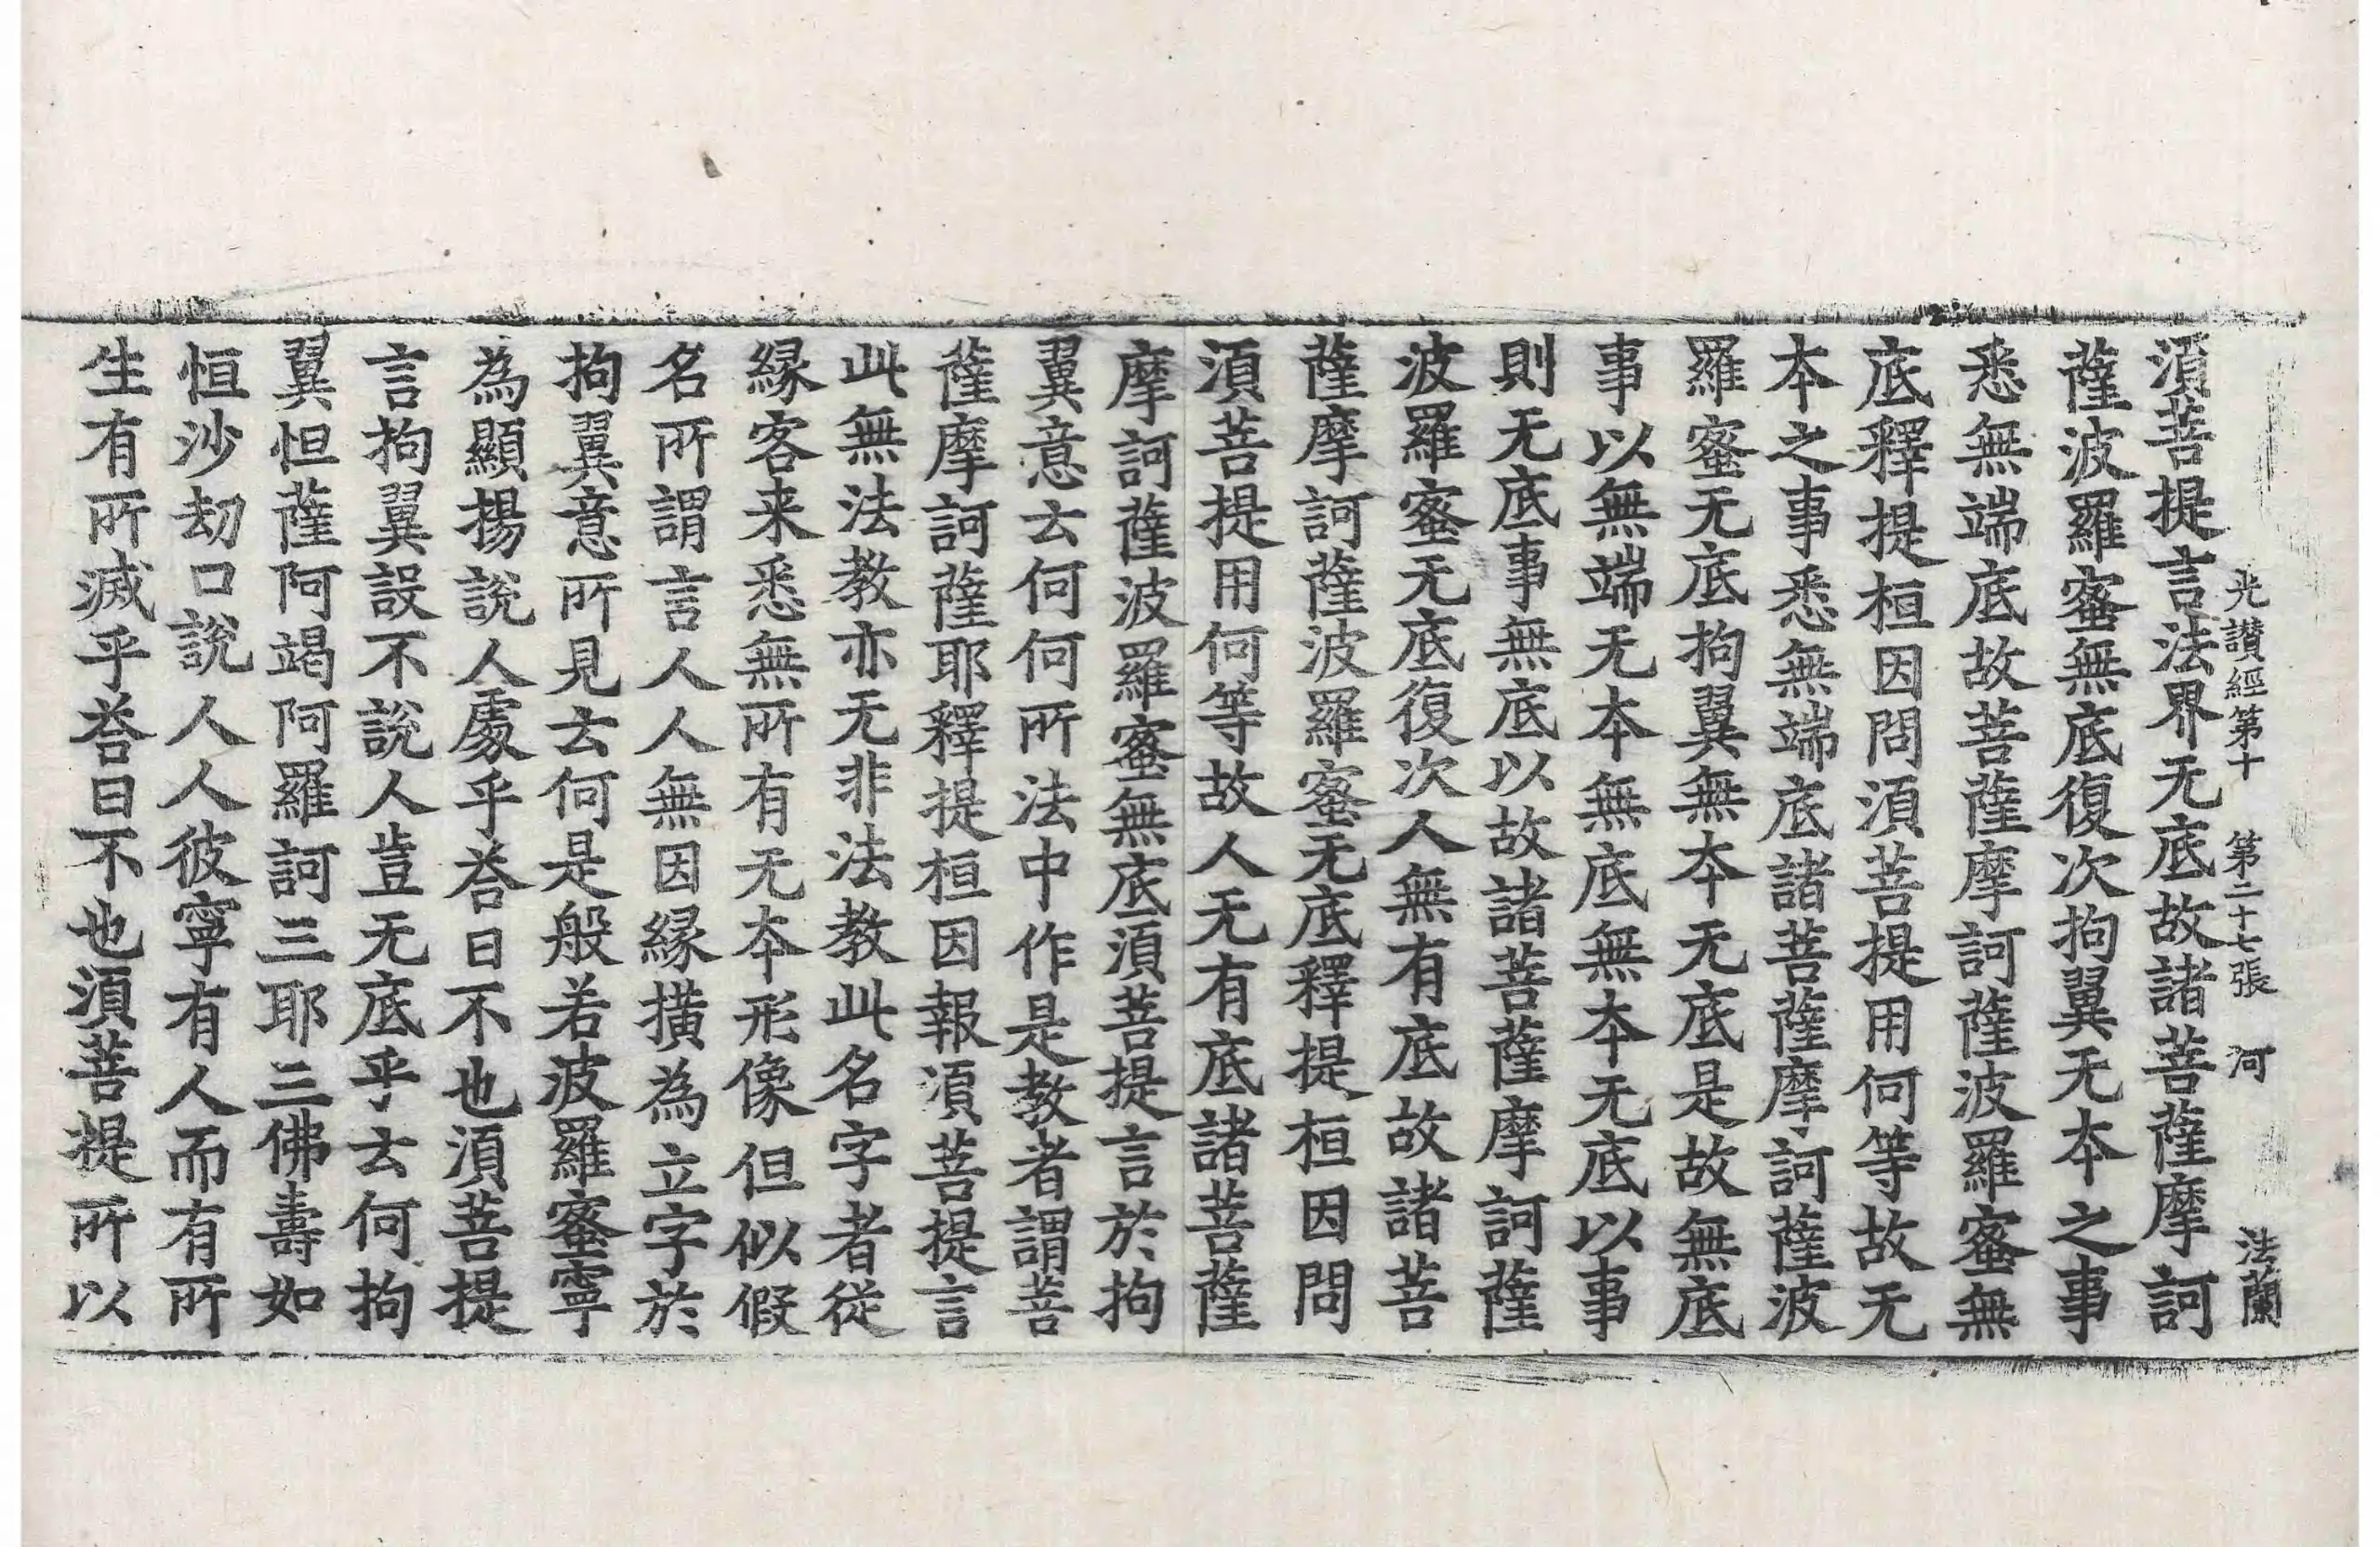 光讚經第十　第二十七張　河　法蘭
須菩提言法界无底故諸菩薩摩訶
薩波羅蜜無底復次拘翼无本之事
悉無端底故菩薩摩訶薩波羅蜜無
底釋提桓因問須菩提用何等故无
本之事悉無端底諸菩薩摩訶薩波
羅蜜无底拘翼無本无底是故無底
事以無端无本無底無本无底以事
則无底事無底以故諸菩薩摩訶薩
波羅蜜无底復次人無有底故諸菩
薩摩訶薩波羅蜜无底釋提桓因問
須菩提用何等故人无有底諸菩薩
摩訶薩波羅蜜無底須菩提言於拘
翼意云何何所法中作是教者謂菩
薩摩訶薩耶釋提桓因報須菩提言
此無法教亦无非法教此名字者從
緣客来悉無所有无本形像但似假
名所謂言人人無因緣撗為立字於
拘翼意所見云何是般若波羅蜜寧
為顯揚說人處乎荅曰不也須菩提
言拘翼設不說人豈无底乎云何拘
翼怛薩阿竭阿羅訶三耶三佛壽如
恒沙劫口說人人彼寧有人而有所
生有所滅乎荅曰不也須菩提所以